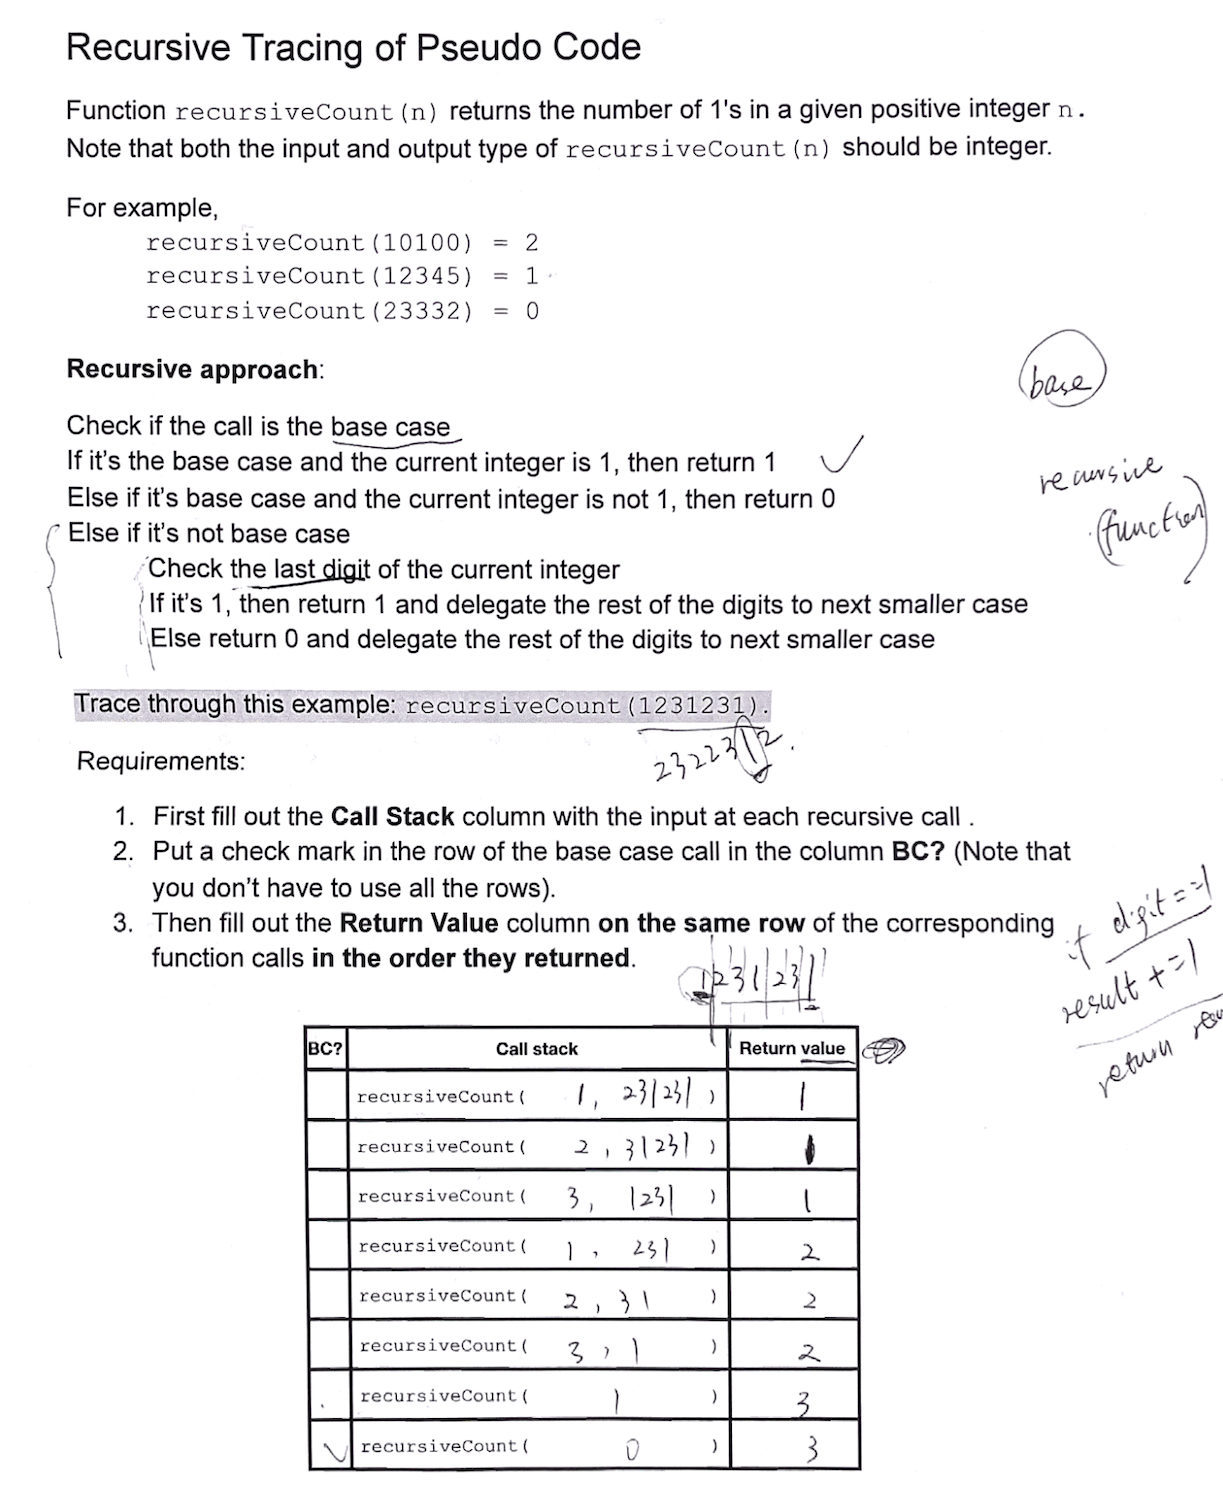 Recursive Tracing of Pseudo Code
Function recursiveCount(n) returns the number of 1's in a given positive integer n.
Note that both the input and output type of recursiveCount(n) should be integer.
For example,
recursiveCount(10100) = 2
recursiveCount(12345) = 1
recursiveCount(23332) = 0
Recursive approach:
base
Check if the call is the base case
If it's the base case and the current integer is 1, then return 1 ✓
Else if it's base case and the current integer is not 1, then return 0
recursive
(function)
Else if it's not base case
Check the last digit of the current integer
If it's 1, then return 1 and delegate the rest of the digits to next smaller case
Else return 0 and delegate the rest of the digits to next smaller case
Trace through this example: recursiveCount(1231231).
2322312.
Requirements:
1. First fill out the Call Stack column with the input at each recursive call .
2. Put a check mark in the row of the base case call in the column BC? (Note that
you don't have to use all the rows).
3. Then fill out the Return Value column on the same row of the corresponding
function calls in the order they returned.
if digit==1
result +=1
return
1231231
BC? Call stack Return value
recursiveCount( 1, 231231 ) 1
recursiveCount( 2, 31231 )
recursiveCount( 3, 1231 ) 1
recursiveCount( 1, 231 ) 2
recursiveCount( 2, 31 ) 2
recursiveCount( 3, 1 ) 2
recursiveCount( 1 ) 3
✓ recursiveCount( 0 ) 3